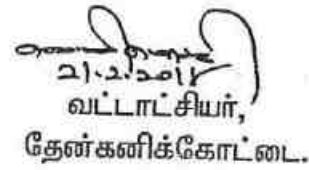 21.2.2011
வட்டாட்சியர்,
தேன்கனிக்கோட்டை.